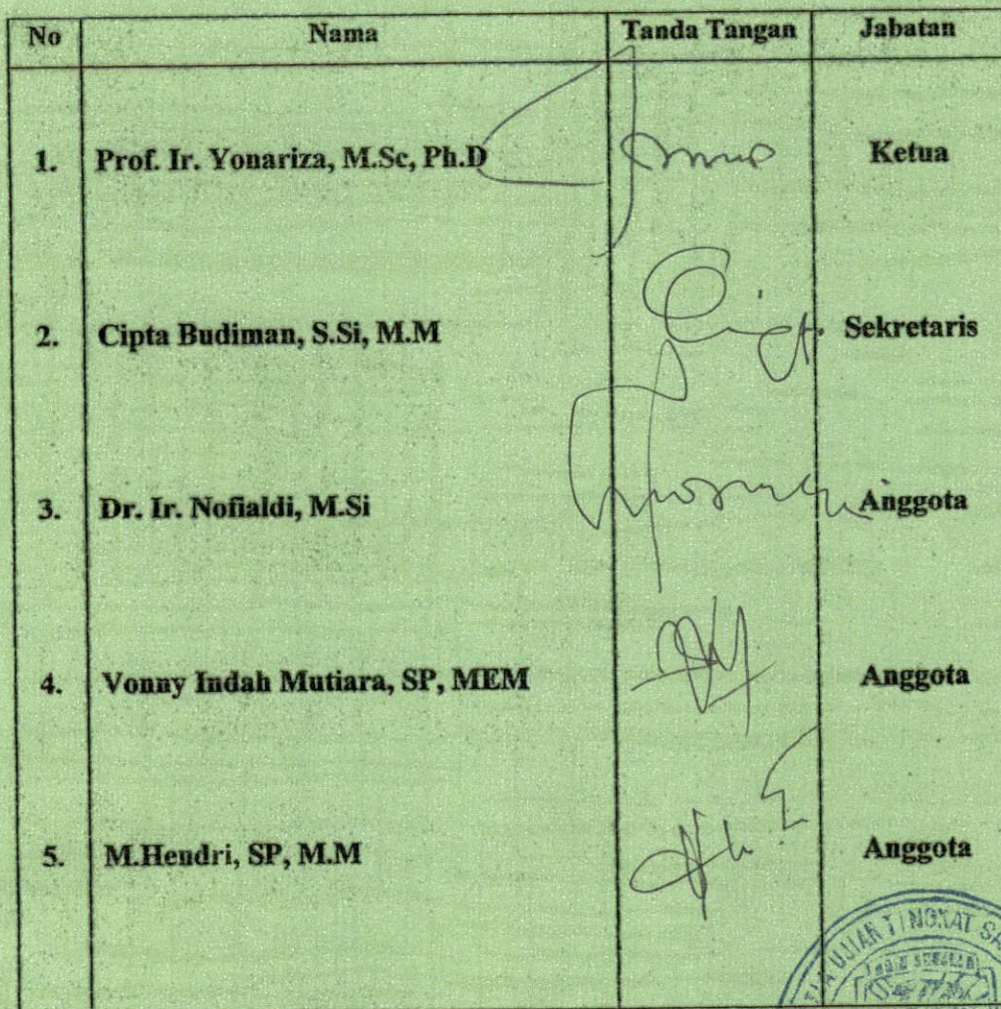 No Nama Tanda Tangan Jabatan
1. Prof. Ir. Yonariza, M.Sc, Ph.D Ketua
2. Cipta Budiman, S.Si, M.M Sekretaris
3. Dr. Ir. Nofialdi, M.Si Anggota
4. Vonny Indah Mutiara, SP, MEM Anggota
5. M.Hendri, SP, M.M Anggota
UJIAN TINGKAT